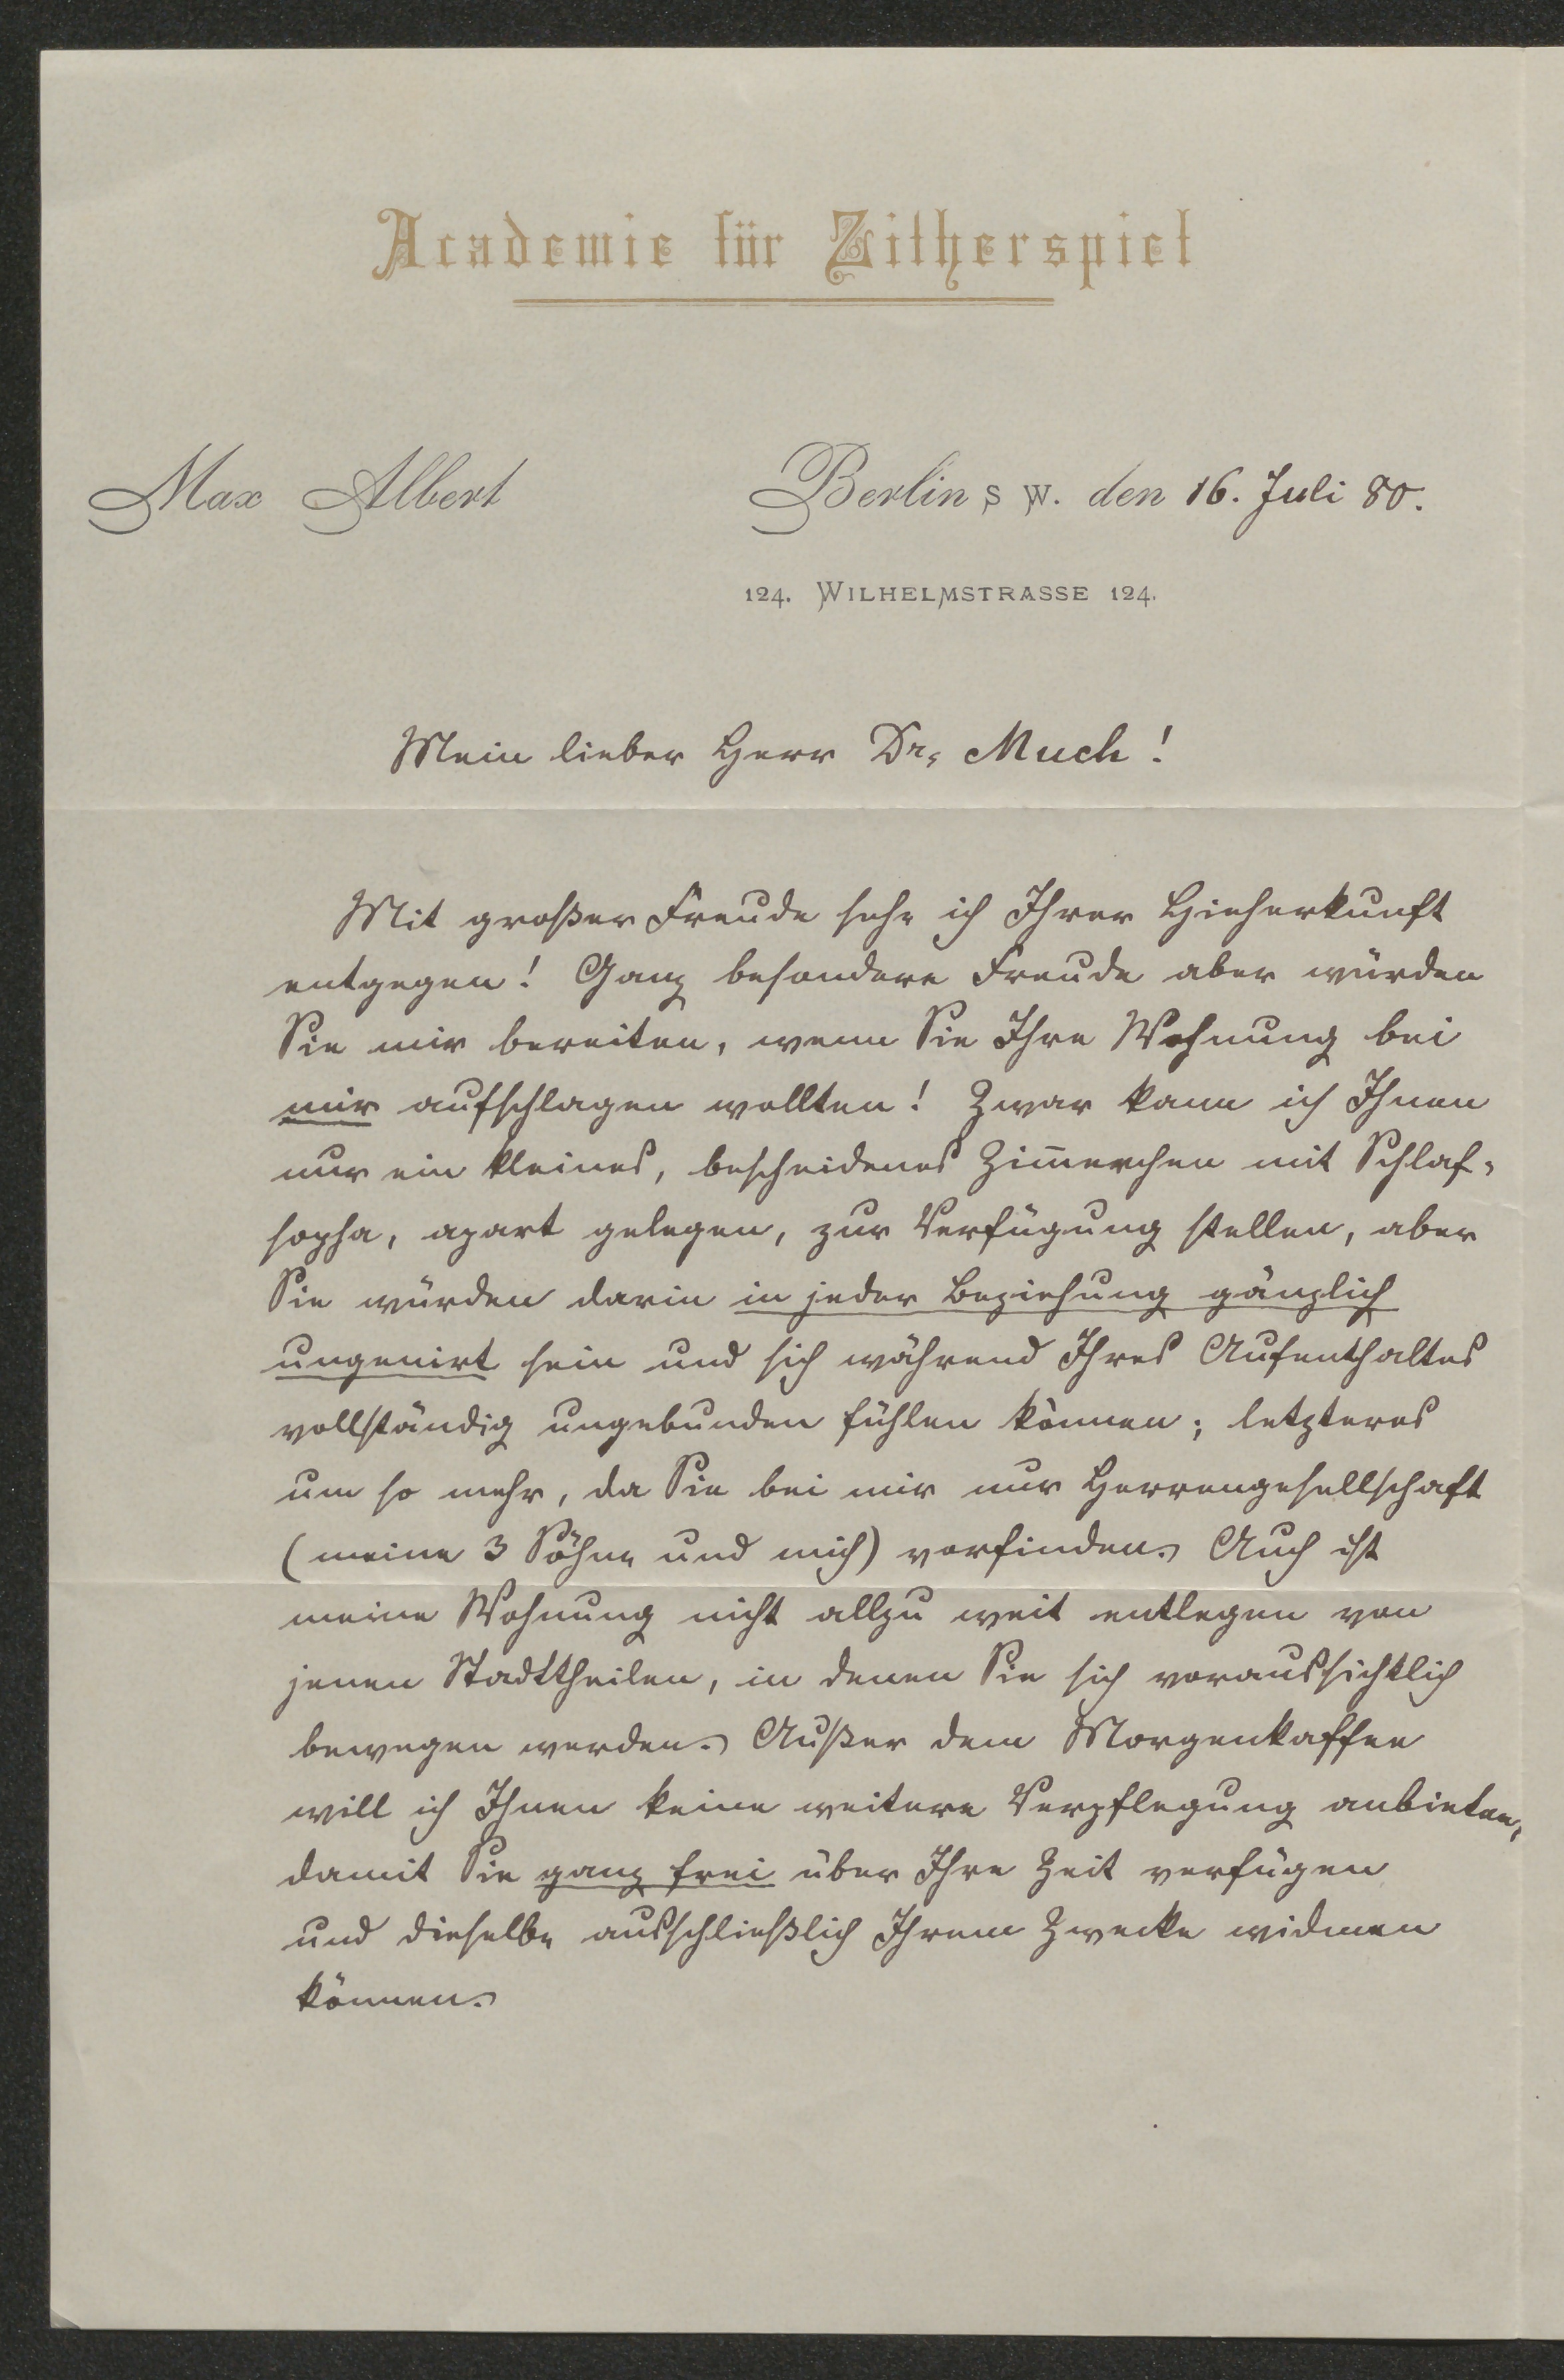 Academie für Zitherspiel
Max Albert
Berlin S W. den 16. Juli 80.
124. WILHELMSTRASSE 124.
Mein lieber Herr Dr. Much!
Mit großer Freude sehe ich Ihrer Hieherkunft
entgegen! Ganz besondere Freude aber würden
Sie mir bereiten, wenn Sie Ihre Wohnung bei
mir aufschlagen wollten! Zwar kann ich Ihnen
nur ein kleines, bescheidenes Zim̅erchen mit Schlaf-
sopha, apart gelegen, zur Verfügung stellen, aber
Sie würden darin in jeder Beziehung gänzlich
ungenirt sein und sich während Ihres Aufenthaltes
vollständig ungebunden fühlen können; letzteres
um so mehr, da Sie bei mir nur Herrengesellschaft
(meine 3 Söhne und mich) vorfinden. Auch ist
meine Wohnung nicht allzu weit entlegen von
jenen Stadttheilen, in denen Sie sich voraussichtlich
bewegen werden. Außer dem Morgenkaffee
will ich Ihnen keine weitere Verpflegung anbieten,
damit Sie ganz frei über Ihre Zeit verfügen
und dieselbe ausschließlich Ihrem Zwecke widmen
können.